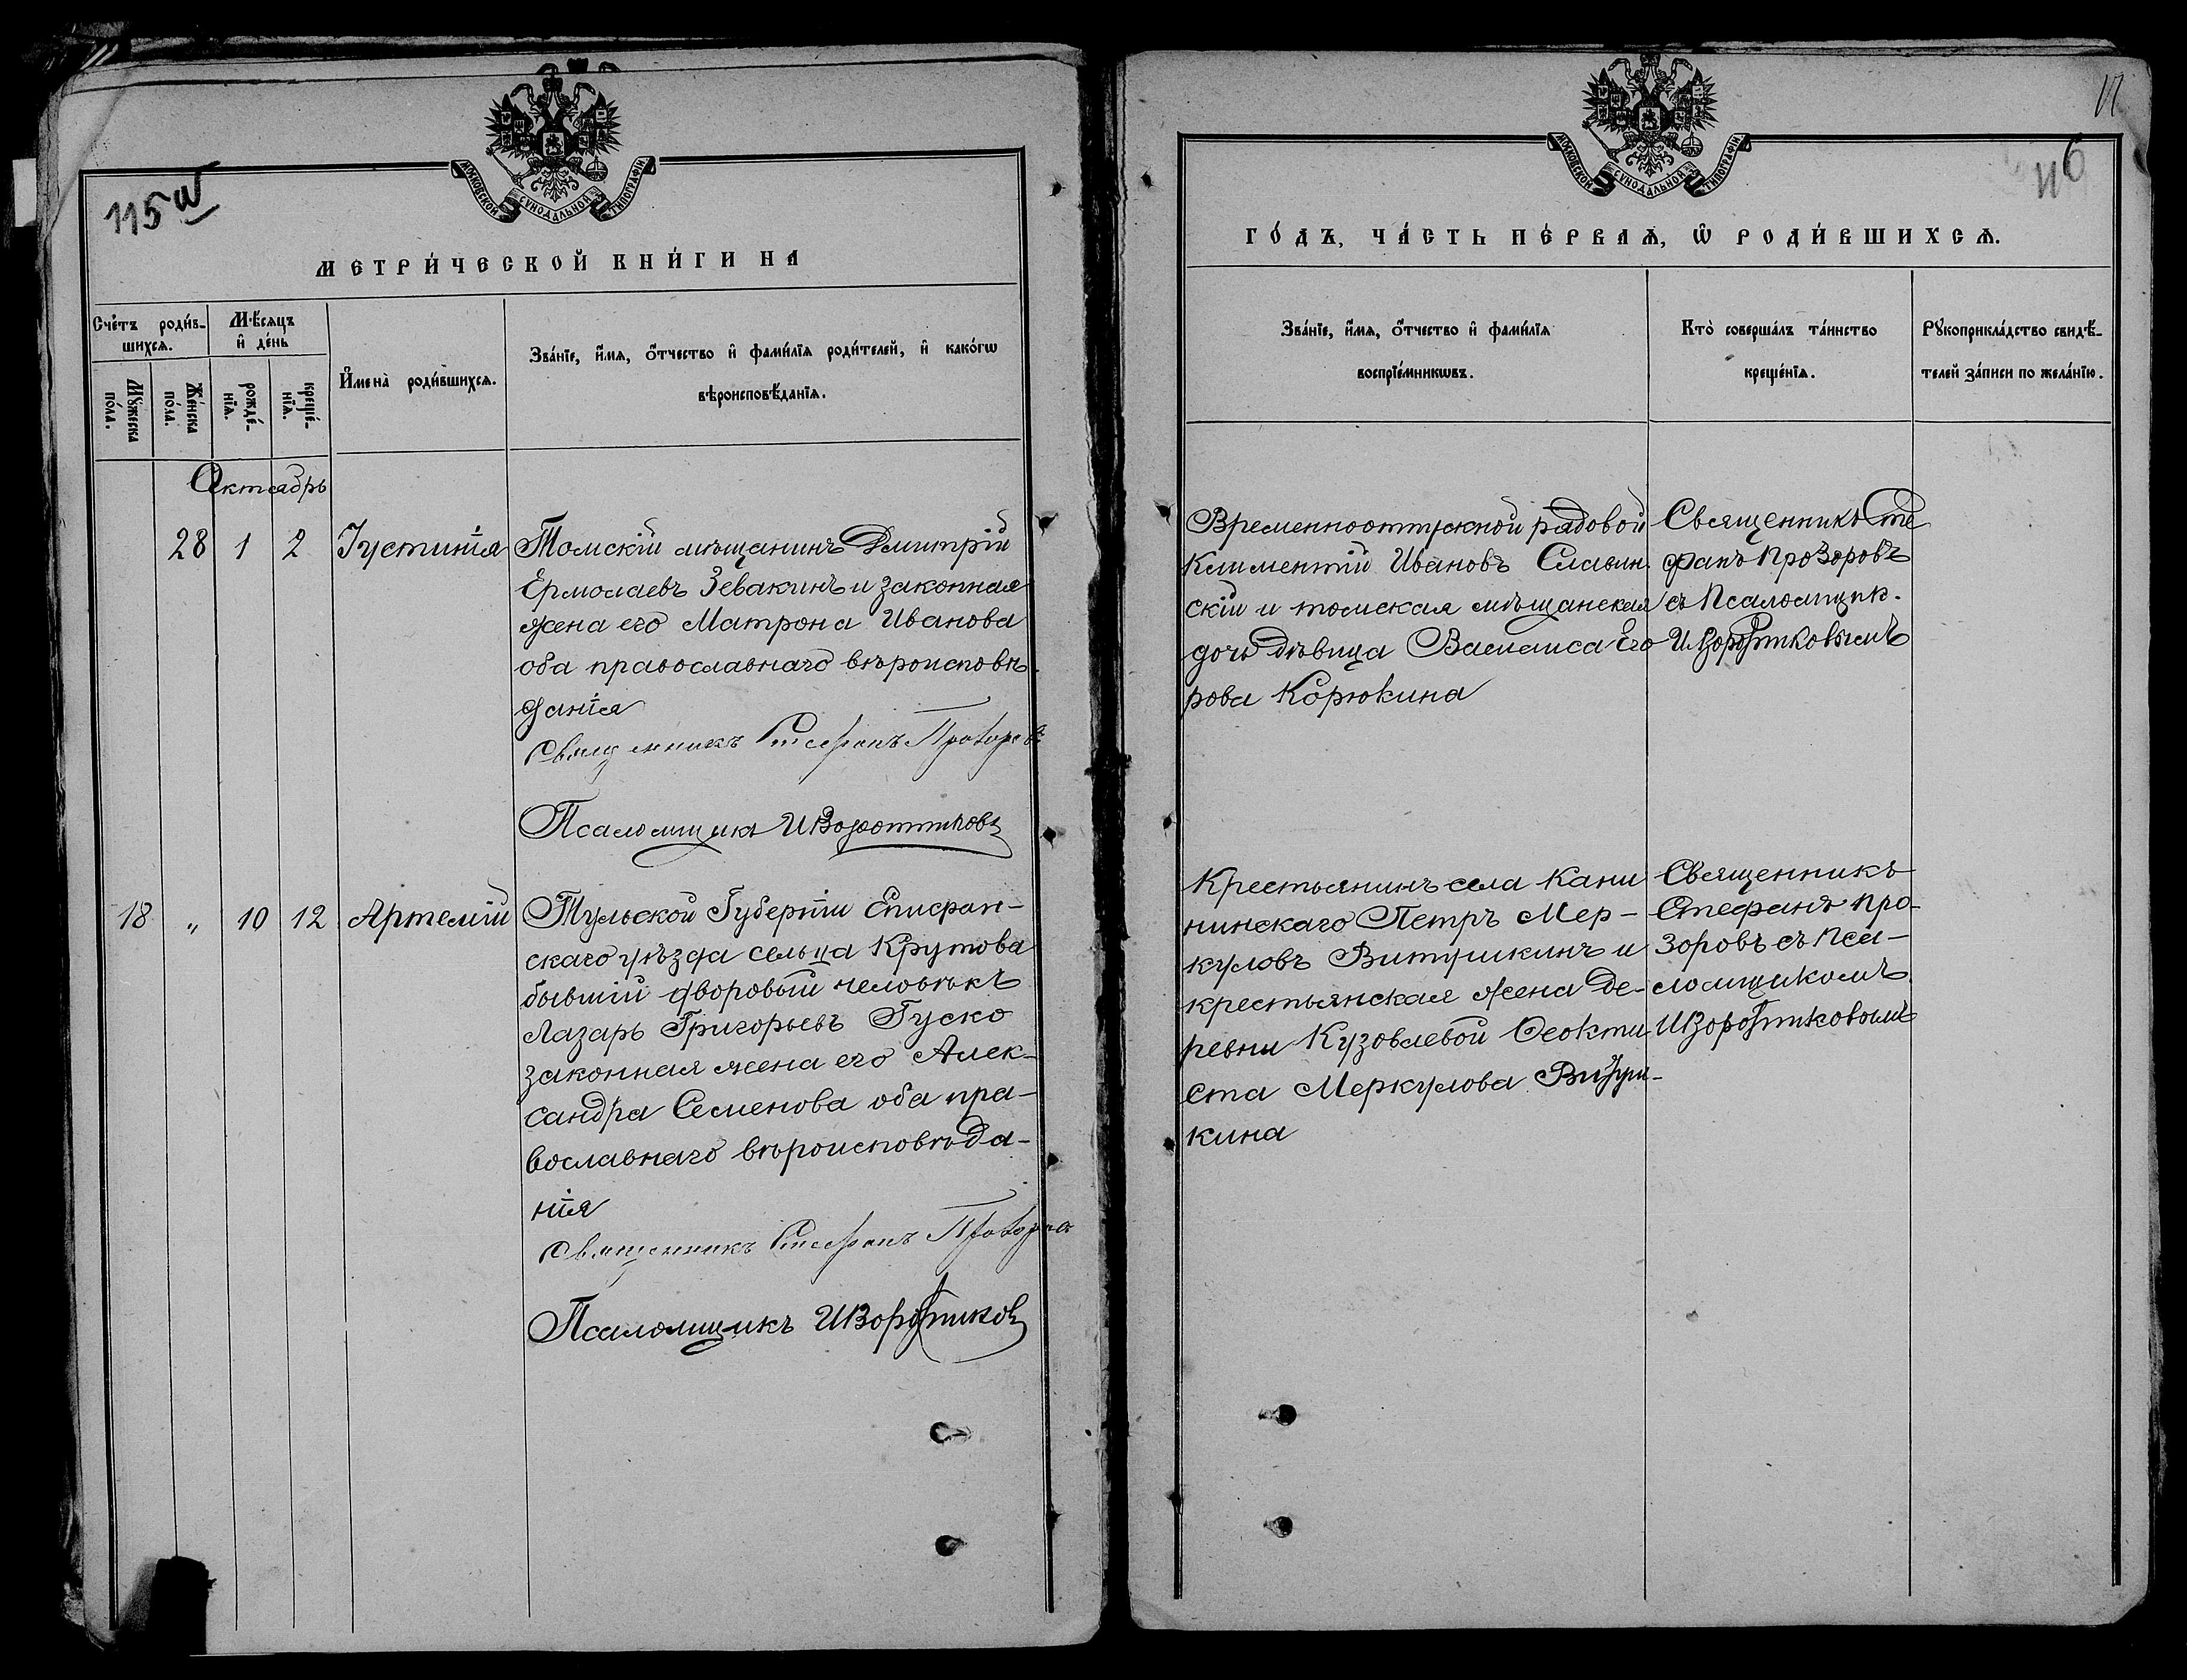 МОСКОВСКОЙ СѴНОДАЛЬНОЙ ТИПОГРАФІИ
115
МЕТРИ́ЧЕСКОЙ КНИ́ГИ НА
Сче́тъ роди́в-
шихсѧ.
Мѣ́сѧцъ
и҆ де́нь
Мꙋ́жеска
по́ла.
Же́нска
по́ла.
рожде́-
нїѧ.
креще́-
нїѧ.
И҆мена̀ роди́вшихсѧ.
Зва́нїе, и҆́мѧ, ѻ҆́тчество и҆ фами́лїѧ роди́телей, и҆ како́гѡ
вѣроисповѣ́данїѧ.
Октябрь
28 1 2 Іустинія
Томскій мѣщанинъ Дмитрій
Ермолаевъ Зевакинъ и законная
жена его Матрона Иванова
оба православнаго вѣроисповѣ-
данія
Священникъ Стефанъ Прозоровъ
Псаломщикъ ИВоротниковъ
18 „ 10 12 Артемій
Тульской Губерніи Епифан-
скаго уѣзда сельца Крутова
бывшій дворовый человѣкъ
Лазарь Григорьевъ Гуско
законная жена его Алек-
сандра Семенова оба пра-
вославнаго вѣроисповѣда-
нія
Священникъ Стефанъ Прозоровъ
Псаломщикъ ИВоротниковъ
МОСКОВСКОЙ СѴНОДАЛЬНОЙ ТИПОГРАФІИ
116
ГО́ДЪ, ЧА́СТЬ ПЕ́РВАѦ, Ѿ РОДИ́ВШИХСѦ.
Зва́нїе, и҆́мѧ, ѻ҆́тчество и҆ фами́лїѧ
воспрїе́мникѡвъ.
Кто̀ соверша́лъ та́инство
креще́нїѧ.
Рꙋкоприкла́дство свидѣ́-
телей за́писи по жела́нїю.
Временноотпускной рядовой
Климентій Ивановъ Славин-
скій и томская мѣщанская
дочь дѣвица Васса
рова Корюкина
Священникъ Сте
фанъ Прозоровъ
съ Псаломщик.
ИВоротниковымъ
Крестьянинъ села Кани
нинскаго Петръ Мер-
куловъ Витушкинъ и
крестьянская жена де-
ревни Кузовлевой Ѳеокти
ста Меркулова Витуш-
кина
Священникъ
Стефанъ Про-
зоровъ съ Пса-
ломщикомъ
ИВоротниковымъ